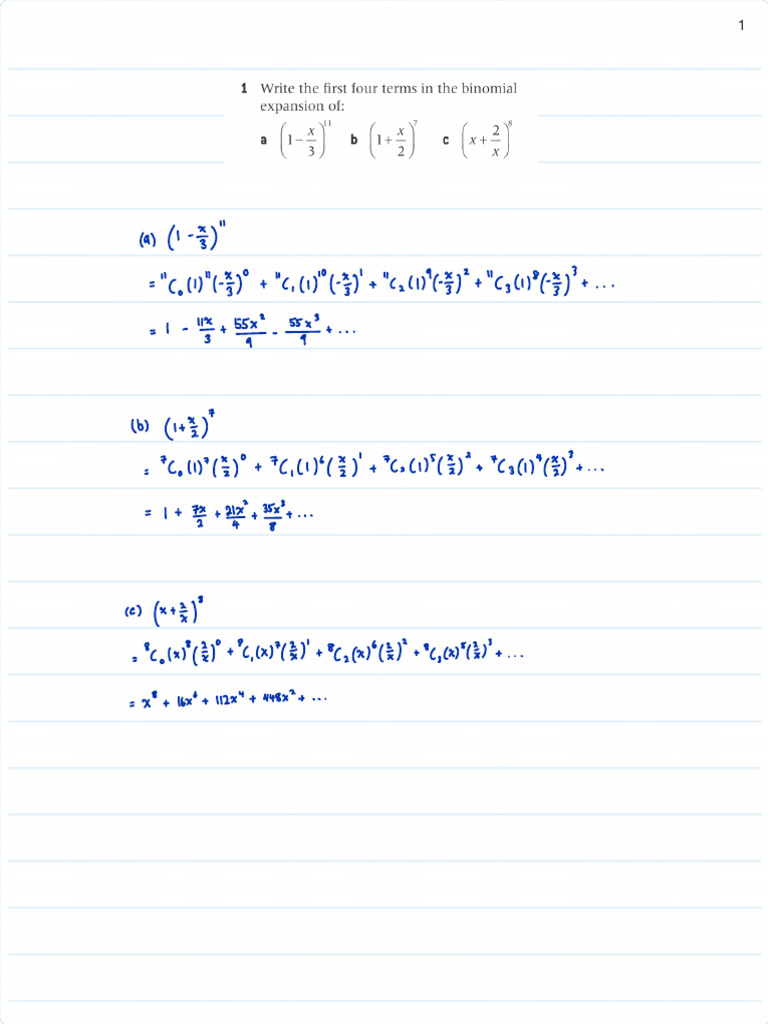 1
1 Write the first four terms in the binomial
expansion of:
a (1 − x/3)^11 b (1 + x/2)^7 c (x + 2/x)^8
(a) (1 − x/3)^11
= ¹¹C₀(1)^11(−x/3)^0 + ¹¹C₁(1)^10(−x/3)^1 + ¹¹C₂(1)^9(−x/3)^2 + ¹¹C₃(1)^8(−x/3)^3 + ...
= 1 − 11x/3 + 55x²/9 − 55x³/9 + ...
(b) (1 + x/2)^7
= ⁷C₀(1)^7(x/2)^0 + ⁷C₁(1)^6(x/2)^1 + ⁷C₂(1)^5(x/2)^2 + ⁷C₃(1)^4(x/2)^3 + ...
= 1 + 7x/2 + 21x²/4 + 35x³/8 + ...
(c) (x + 2/x)^8
= ⁸C₀(x)^8(2/x)^0 + ⁸C₁(x)^7(2/x)^1 + ⁸C₂(x)^6(2/x)^2 + ⁸C₃(x)^5(2/x)^3 + ...
= x⁸ + 16x⁶ + 112x⁴ + 448x² + ...